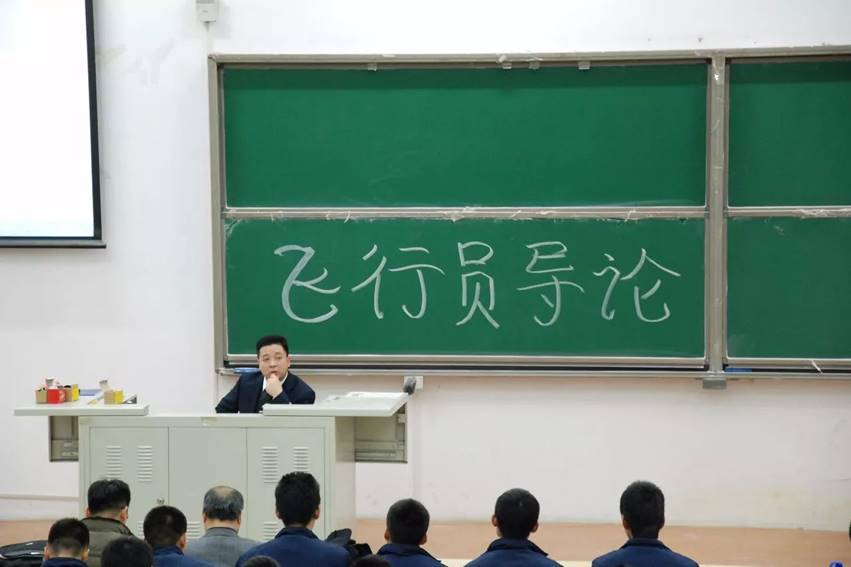 飞行员导论